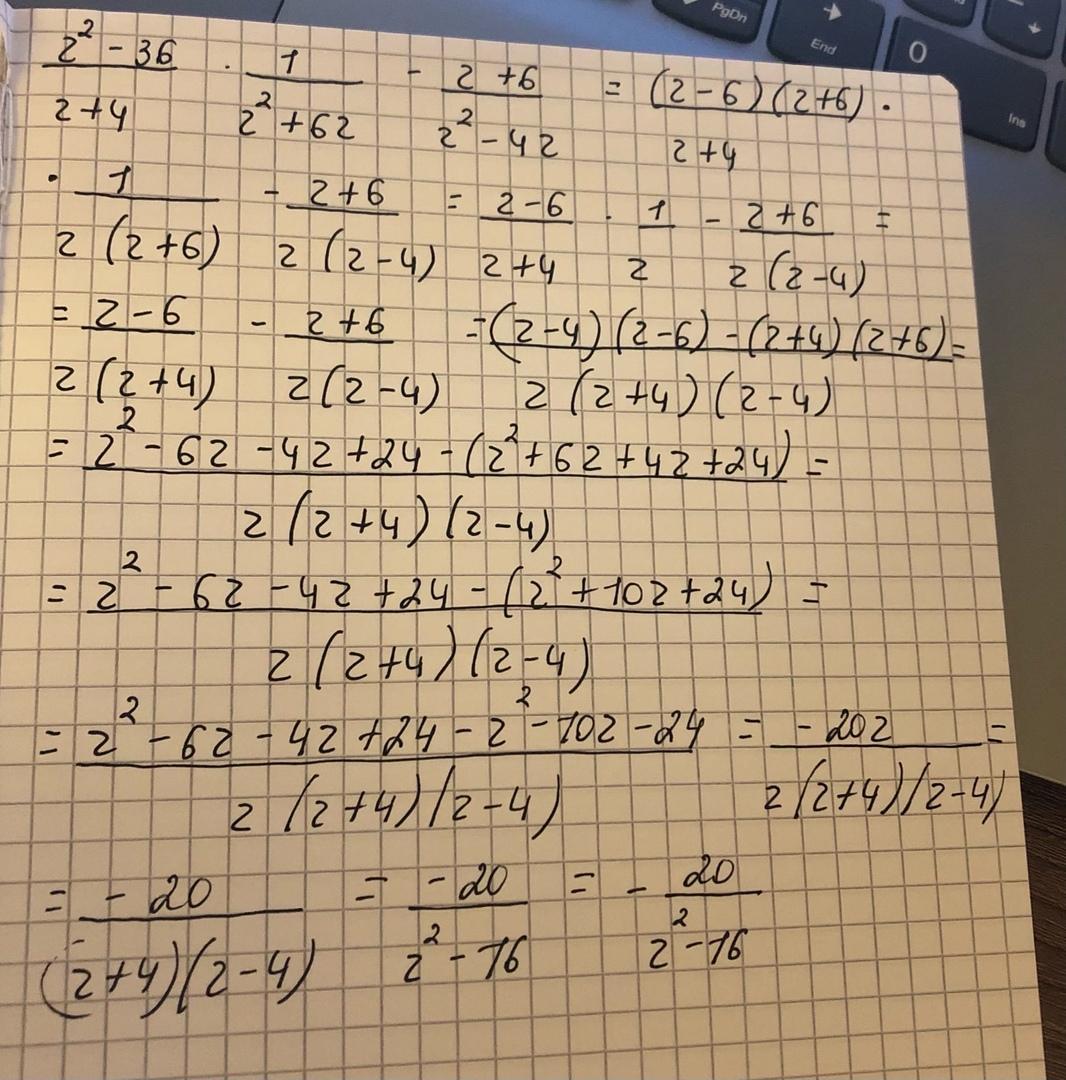 PgDn → End 0 Ins
(z² - 36)/(z + 4) · 1/(z² + 6z) - (z + 6)/(z² - 4z) = ((z - 6)(z + 6))/(z + 4) ·
· 1/(z (z + 6)) - (z + 6)/(z (z - 4)) = (z - 6)/(z + 4) · 1/z - (z + 6)/(z (z - 4)) =
= (z - 6)/(z (z + 4)) - (z + 6)/(z (z - 4)) = ((z - 4)(z - 6) - (z + 4)(z + 6))/(z (z + 4)(z - 4)) =
= (z² - 6z - 4z + 24 - (z² + 6z + 4z + 24))/(z (z + 4)(z - 4)) =
= (z² - 6z - 4z + 24 - (z² + 10z + 24))/(z (z + 4)(z - 4)) =
= (z² - 6z - 4z + 24 - z² - 10z - 24)/(z (z + 4)(z - 4)) = (- 20z)/(z (z + 4)(z - 4)) =
= (- 20)/((z + 4)(z - 4)) = (- 20)/(z² - 16) = - 20/(z² - 16)